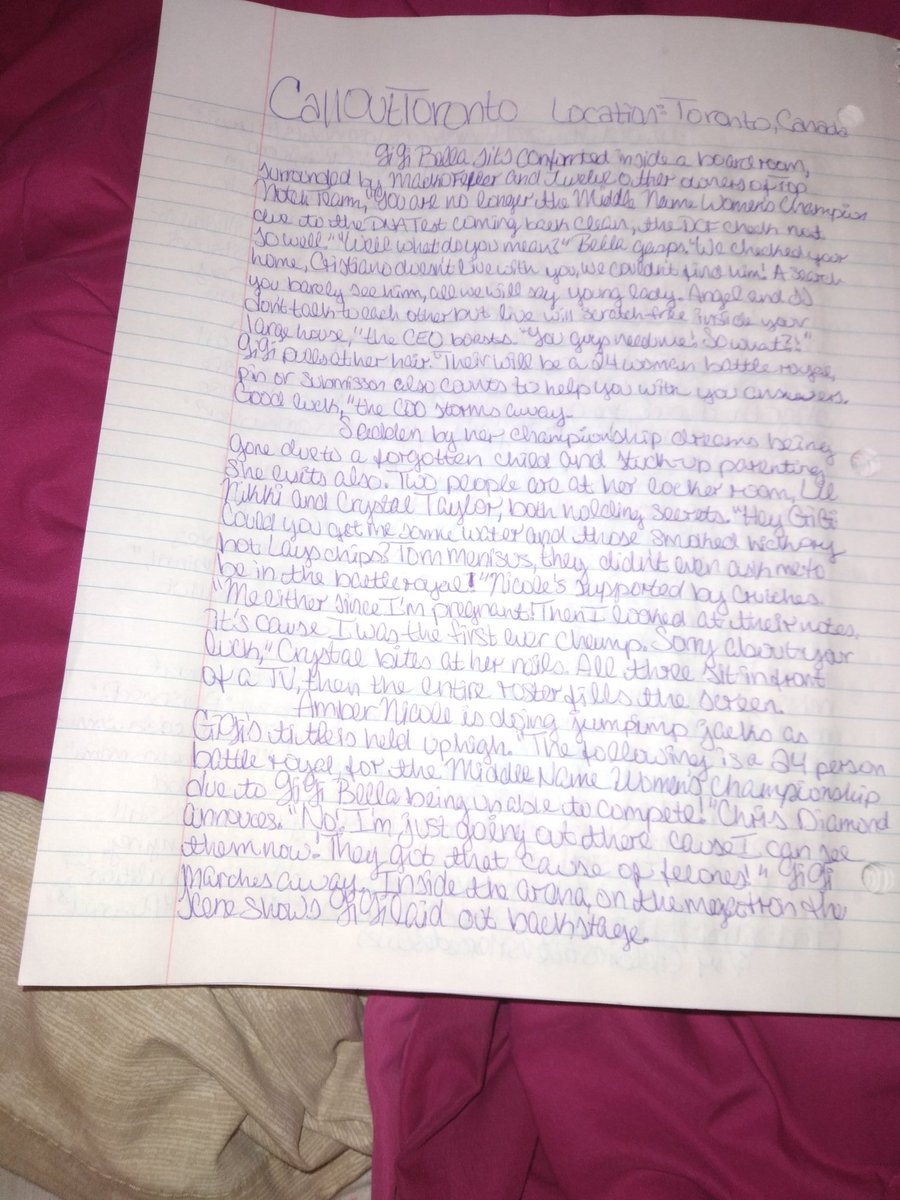 CallOutToronto Location: Toronto, Canada
GiGi Bella sits confronted inside a boardroom,
surrounded by, and twelve other owners of Top
Notch Team, "You are no longer the Middle Name Women's Champion
due to the DNA Test coming back clean, the DCF check not
so well." "Well what do you mean?" Bella gasps. "We checked your
home, Cristiano doesn't live with you, we couldn't find him! A search
you barely see him, all we will say young lady. Angel and JJ
don't talk to each other but live will scratch-free inside your
large house," the CEO boasts. "You guys need me! So what?!"
GiGi pulls at her hair. "Their will be a 24 women battle royal,
pin or submisson also counts to help you with you answers.
Good luck," the COO storms away.
Sadden by her championship dreams being
gone due to a forgotten child and stuck-up parenting
she exits also. Two people are at her locker room, Lil
Nikki and Crystal Taylor, both holding secrets. "Hey GiGi
could you get me some water and those smoked hickory
hot Lays chips? Torn meniscus, they didn't even ask me to
be in the battle royal!" Nicole's supported by crutches.
"Me either since I'm pregnant! Then I looked at their notes,
it's cause I was the first ever champ. Sorry about your
luck," Crystal bites at her nails. All three sit in front
of a TV, then the entire roster fills the screen.
Amber Nicole is doing jumpimp jacks as
GiGi's title is held up high. "The following is a 24 person
battle royal for the Middle Name Women's Championship
due to GiGi Bella being unable to compete!" Chris Diamond
annouces. "No! I'm just going out there cause I can see
them now! They got that 'cause of felones!" GiGi
marches away. Inside the arena, on the megatron the
scene shows GiGi laid out backstage.